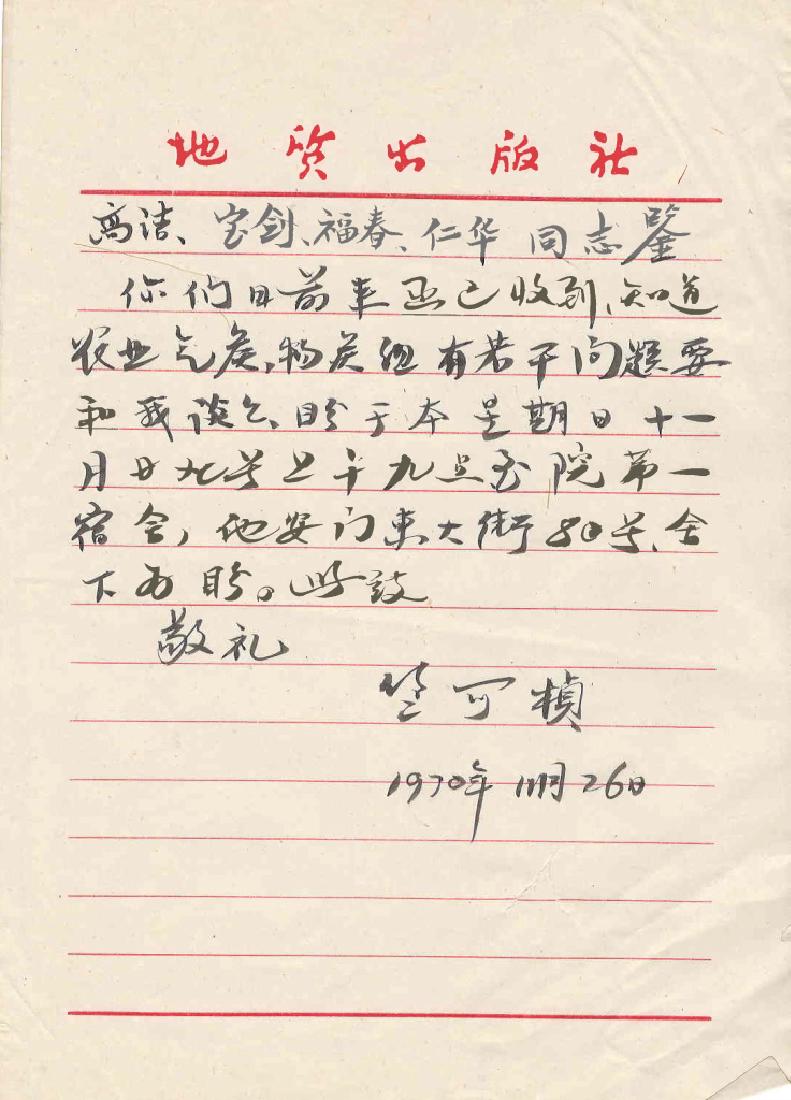 地质出版社
高洁、宝剑、福春、仁华 同志鉴
你们日前来函已收到、知道
农业气候,物候组有若干问题要
和我谈谈、盼于本星期日十一
月廿九号上午九点至院第一
宿舍,地安门东大街80号、舍
下为盼。此致
敬礼
竺可桢
1970年11月26日